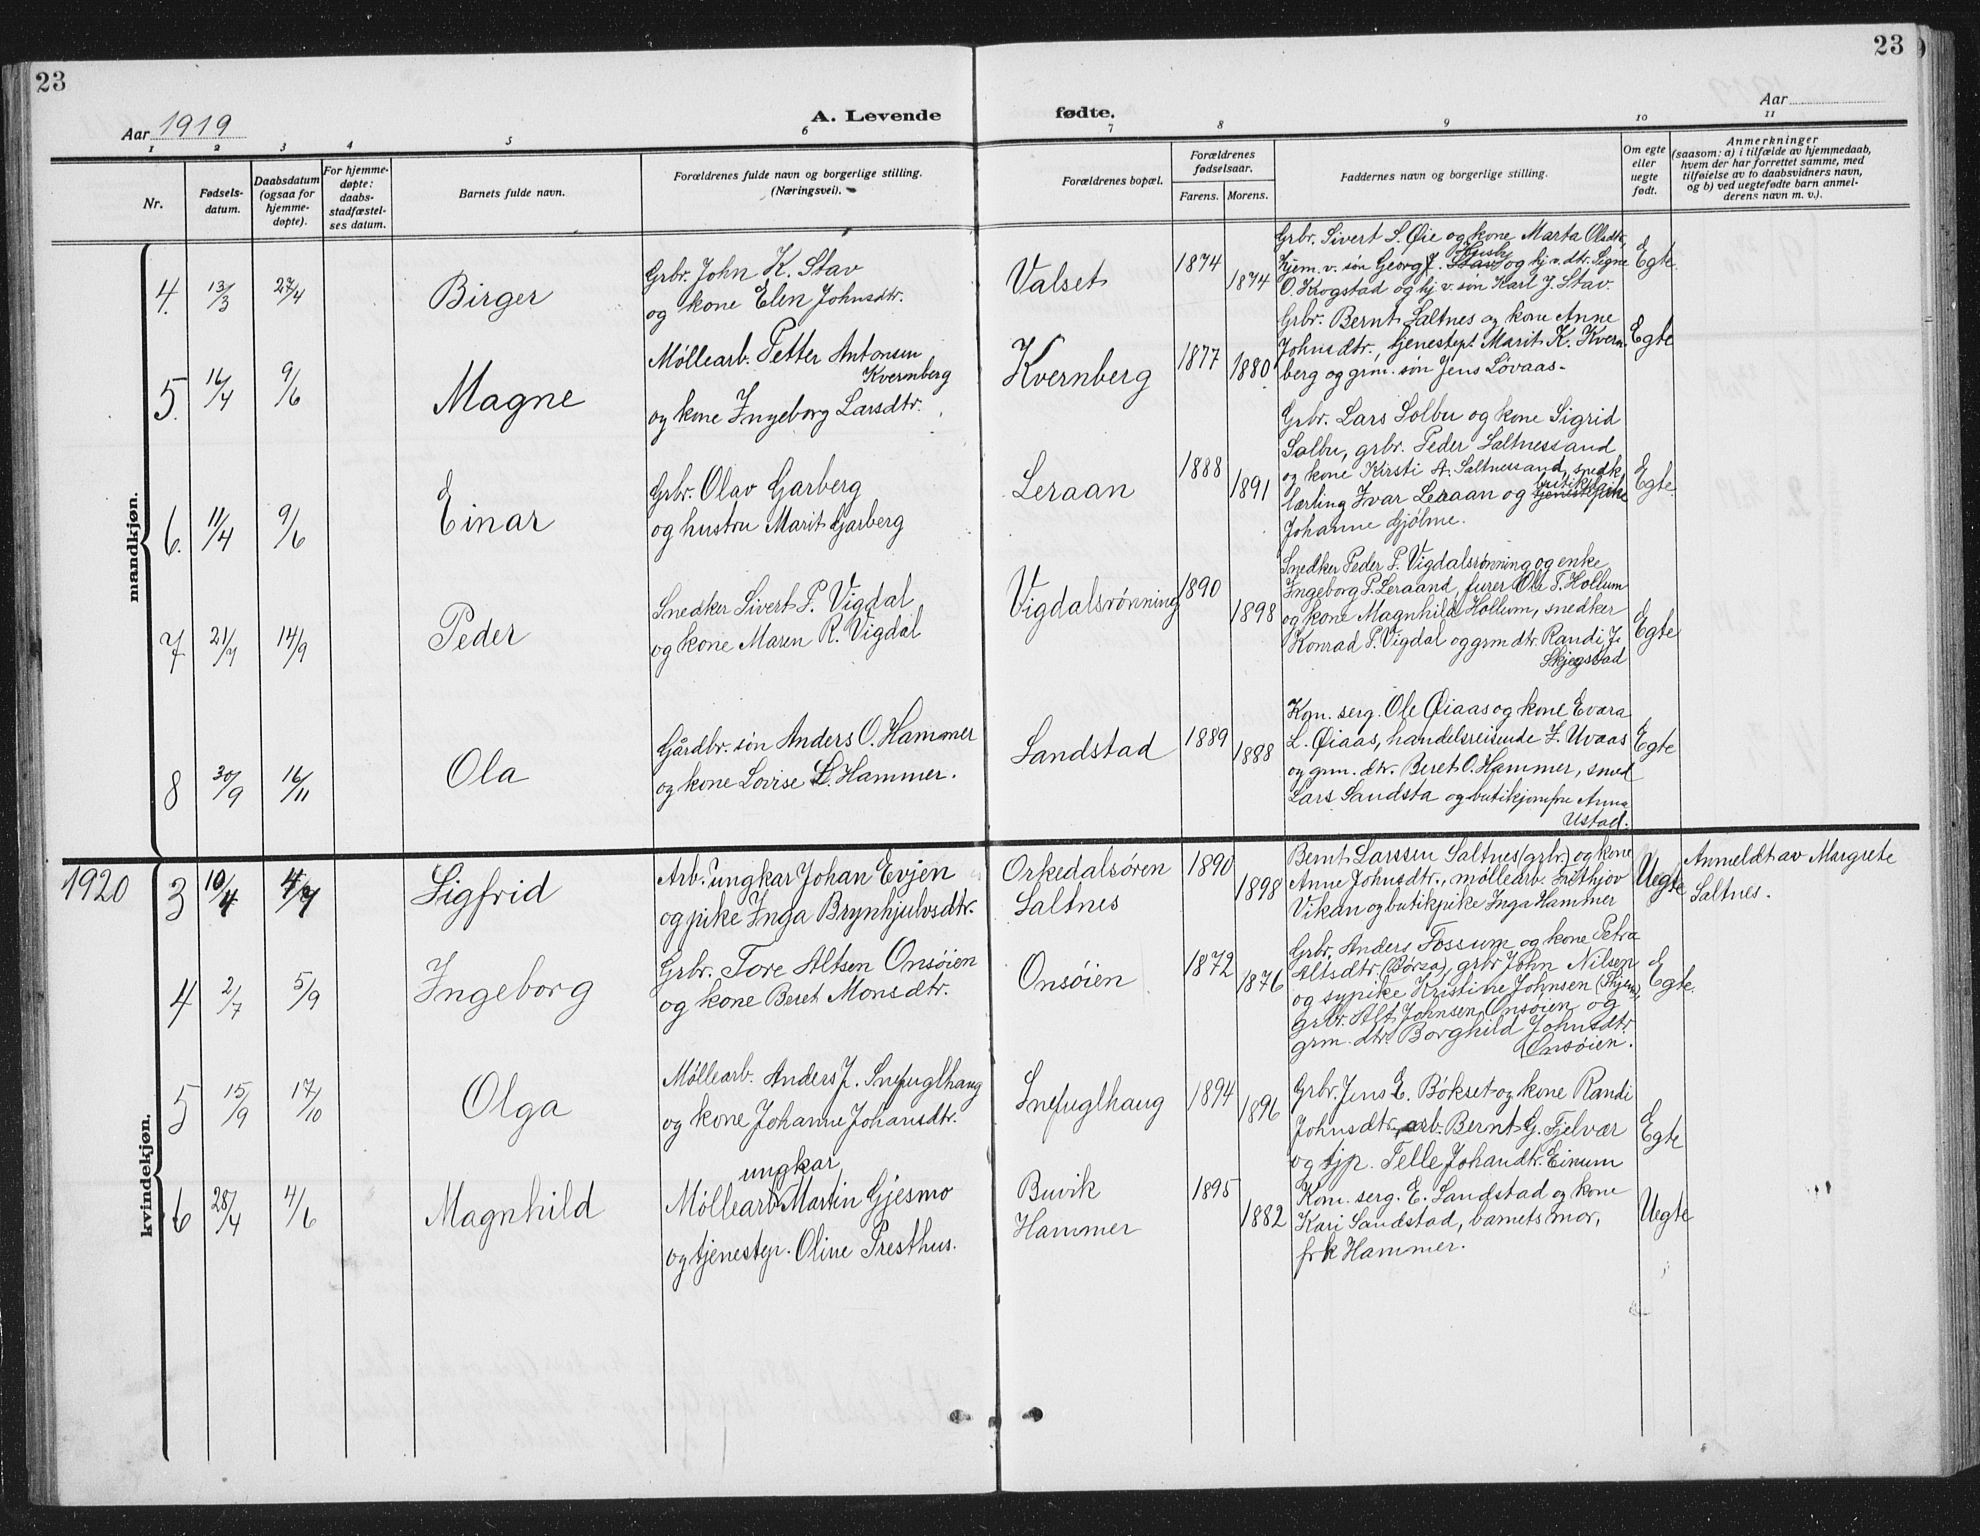 23
23
Aar 1919
A. Levende fødte.
Aar
1 2 3 4 5 6 7 8 9 10 11
Nr.
Fødsels-
datum.
Daabsdatum
(ogsaa for
hjemme-
døpte).
For hjemme-
døpte:
daabs-
stadfæstel-
ses datum.
Barnets fulde navn.
Forældrenes fulde navn og borgerlige stilling.
(Næringsvei).
Forældrenes bopæl.
Forældrenes
fødselsaar.
Farens. Morens.
Faddernes navn og borgerlige stilling.
Om egte
eller
uegte
født.
Anmerkninger
(saasom: a) i tilfælde av hjemmedaab,
hvem der har forrettet samme, med
tilføielse av to daabsvidners navn,
og b) ved uegtefødte barn anmel-
derens navn m. v.).
mandkjøn.
4. 13/3 27/4 Birger
Grbr. John K. Stav
og kone Elen Johnsdtr.
Valset 1874 1874
Grbr. Sivert S. Øie og kone Marta Olsdtr,
hjem. v. søn Georg J. Stav og hj v. dtr. Signe
O. Krogstad og hj v. søn Karl J. Stav.
Egte
5. 16/4 9/6 Magne
Møllearb. Petter Antonsen
Kvernberg
og kone Ingeborg Larsdtr.
Kvernberg 1877 1880
Grbr. Bernt Saltnes og kone Anne
Johnsdtr., tjenestep. Marit K. Kvern-
berg og grm. søn Jens Løvaas-
Egte
6. 11/4 9/6 Einar
Grbr. Olav Garberg
og hustru Marit Garberg
Leraan 1888 1891
Grbr. Lars Solbu og kone Sigrid
Solbu, grbr. Peder Saltnessand
og kone Kirsti A. Saltnessand, snedk.
lærling Ivar Leraan og tjenestepike
Johanne Gjølme.
Egte.
7 21/7 14/9 Peder
Snedker Sivert P. Vigdal
og kone Maren R. Vigdal
Vigdalsrønning 1890 1898
Snedker Peder P. Vigdalsrønning og enke
Ingeborg P. Leraand, furer Ole T. Hollum
og kone Magnhild Hollum, snedker
Konrad P. Vigdal og grm dtr. Randi J.
Skjegstad
Egte
8 30/9 16/11 Ola
Gårdbr. søn Anders O. Hammer
og kone Lovise L. Hammer.
Sandstad 1889 1888
Kom. serg. Ole Øiaas og kone Evara
L. Øiaas, handelsreisende I. Uvaas
og grm. dtr. Beret O. Hammer, smed
Lars Sandsta og butikjomfru Anna
Ustad.
Egte
1920
kvindekjøn.
3 10/4 4/7 Sigfrid
Arb. ungkar Johan Evjen
og pike Inga Brynhjulvsdtr.
Orkedalsøren
Saltnes
1890 1898
Bernt Larssen Saltnes (grbr.) og kone
Anne Johnsdtr., møllearb. Frithjov
Vikan og butikpike Inga Hammer
Uegte
Anmeldt av Margrete
Saltnes.
4 2/7 5/9 Ingeborg
Grbr. Tore Altsen Onsøien
og kone Beret Monsdtr.
Onsøien 1872 1876
Grbr. Anders Fossum og kone Petra
Altsdtr. (Børsa), grbr John Nilsen
og sypike Kristine Johnsen (Skjenn),
grbr. Alt Johnsen Onsøien og
grm. dtr. Borghild Johnsdtr.
Onsøien.
Egte.
5 15/9 17/10 Olga
Møllearb. Anders J. Snefuglhaug
og kone Johanne Johansdtr.
Snefuglhaug 1894 1896
Grbr. Jens E. Bökset og kone Randi
Johnsdtr., arb. Bernt G. Fjelvær
og tjp. Pelle Johandtr. Einum
Egte
6 28/4 4/6 Magnhild
ungkar
Møllearb. Martin Gjesmo
og tjenestep. Oline Presthus.
Buvik
Hammer
1895 1882
Kom. serg. E. Sandstad og kone
Kari Sandstad, barnets mor,
frk Hammer.
Uegte